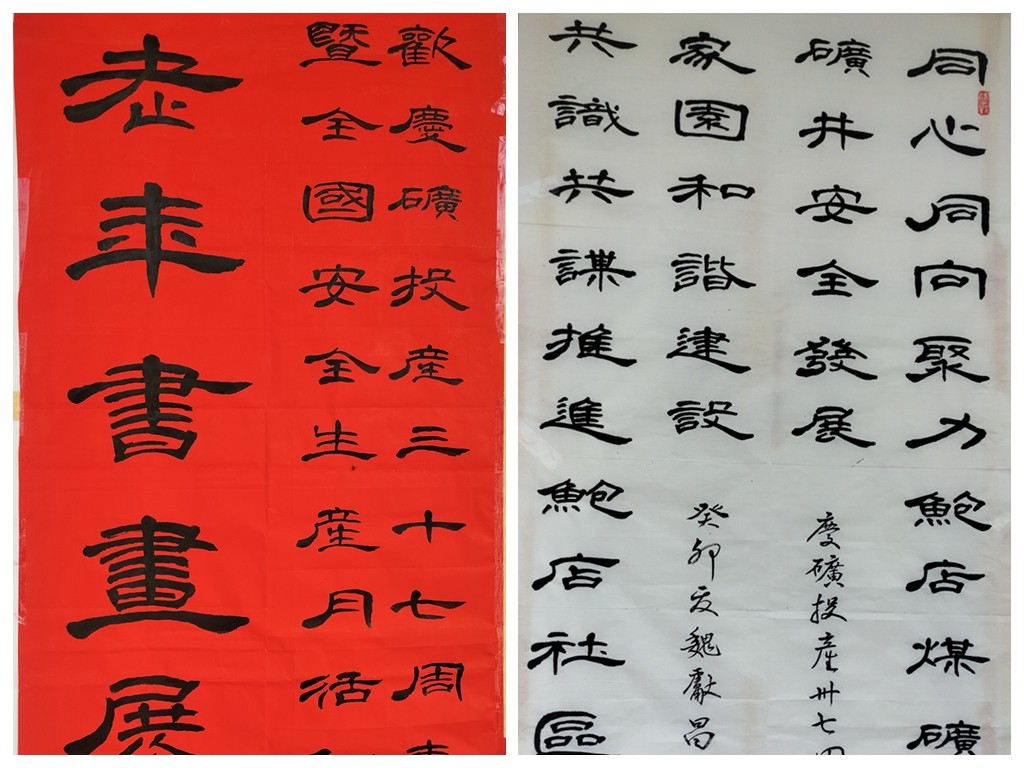 歡慶礦投産三十七周
暨全國安全生産月活
老年書畫展
同心同向聚力鮑店煤礦
礦井安全發展
慶礦投産卅七
家園和諧建設
癸卯夏魏獻昌
共識共謀推進鮑店社區